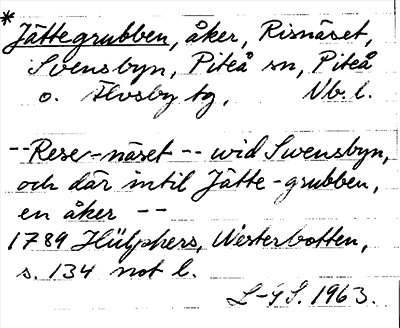 * Jättegrubben, åker, Risnäset,
Svensbyn, Piteå sn, Piteå
o. Älvsby tg, Nb. l.
-- Rese-näset -- wid Swensbyn,
och där intil Jätte-grubben,
en åker --
1789 Hülphers, Westerbotten,
s. 134 not l.
L-4S. 1963.